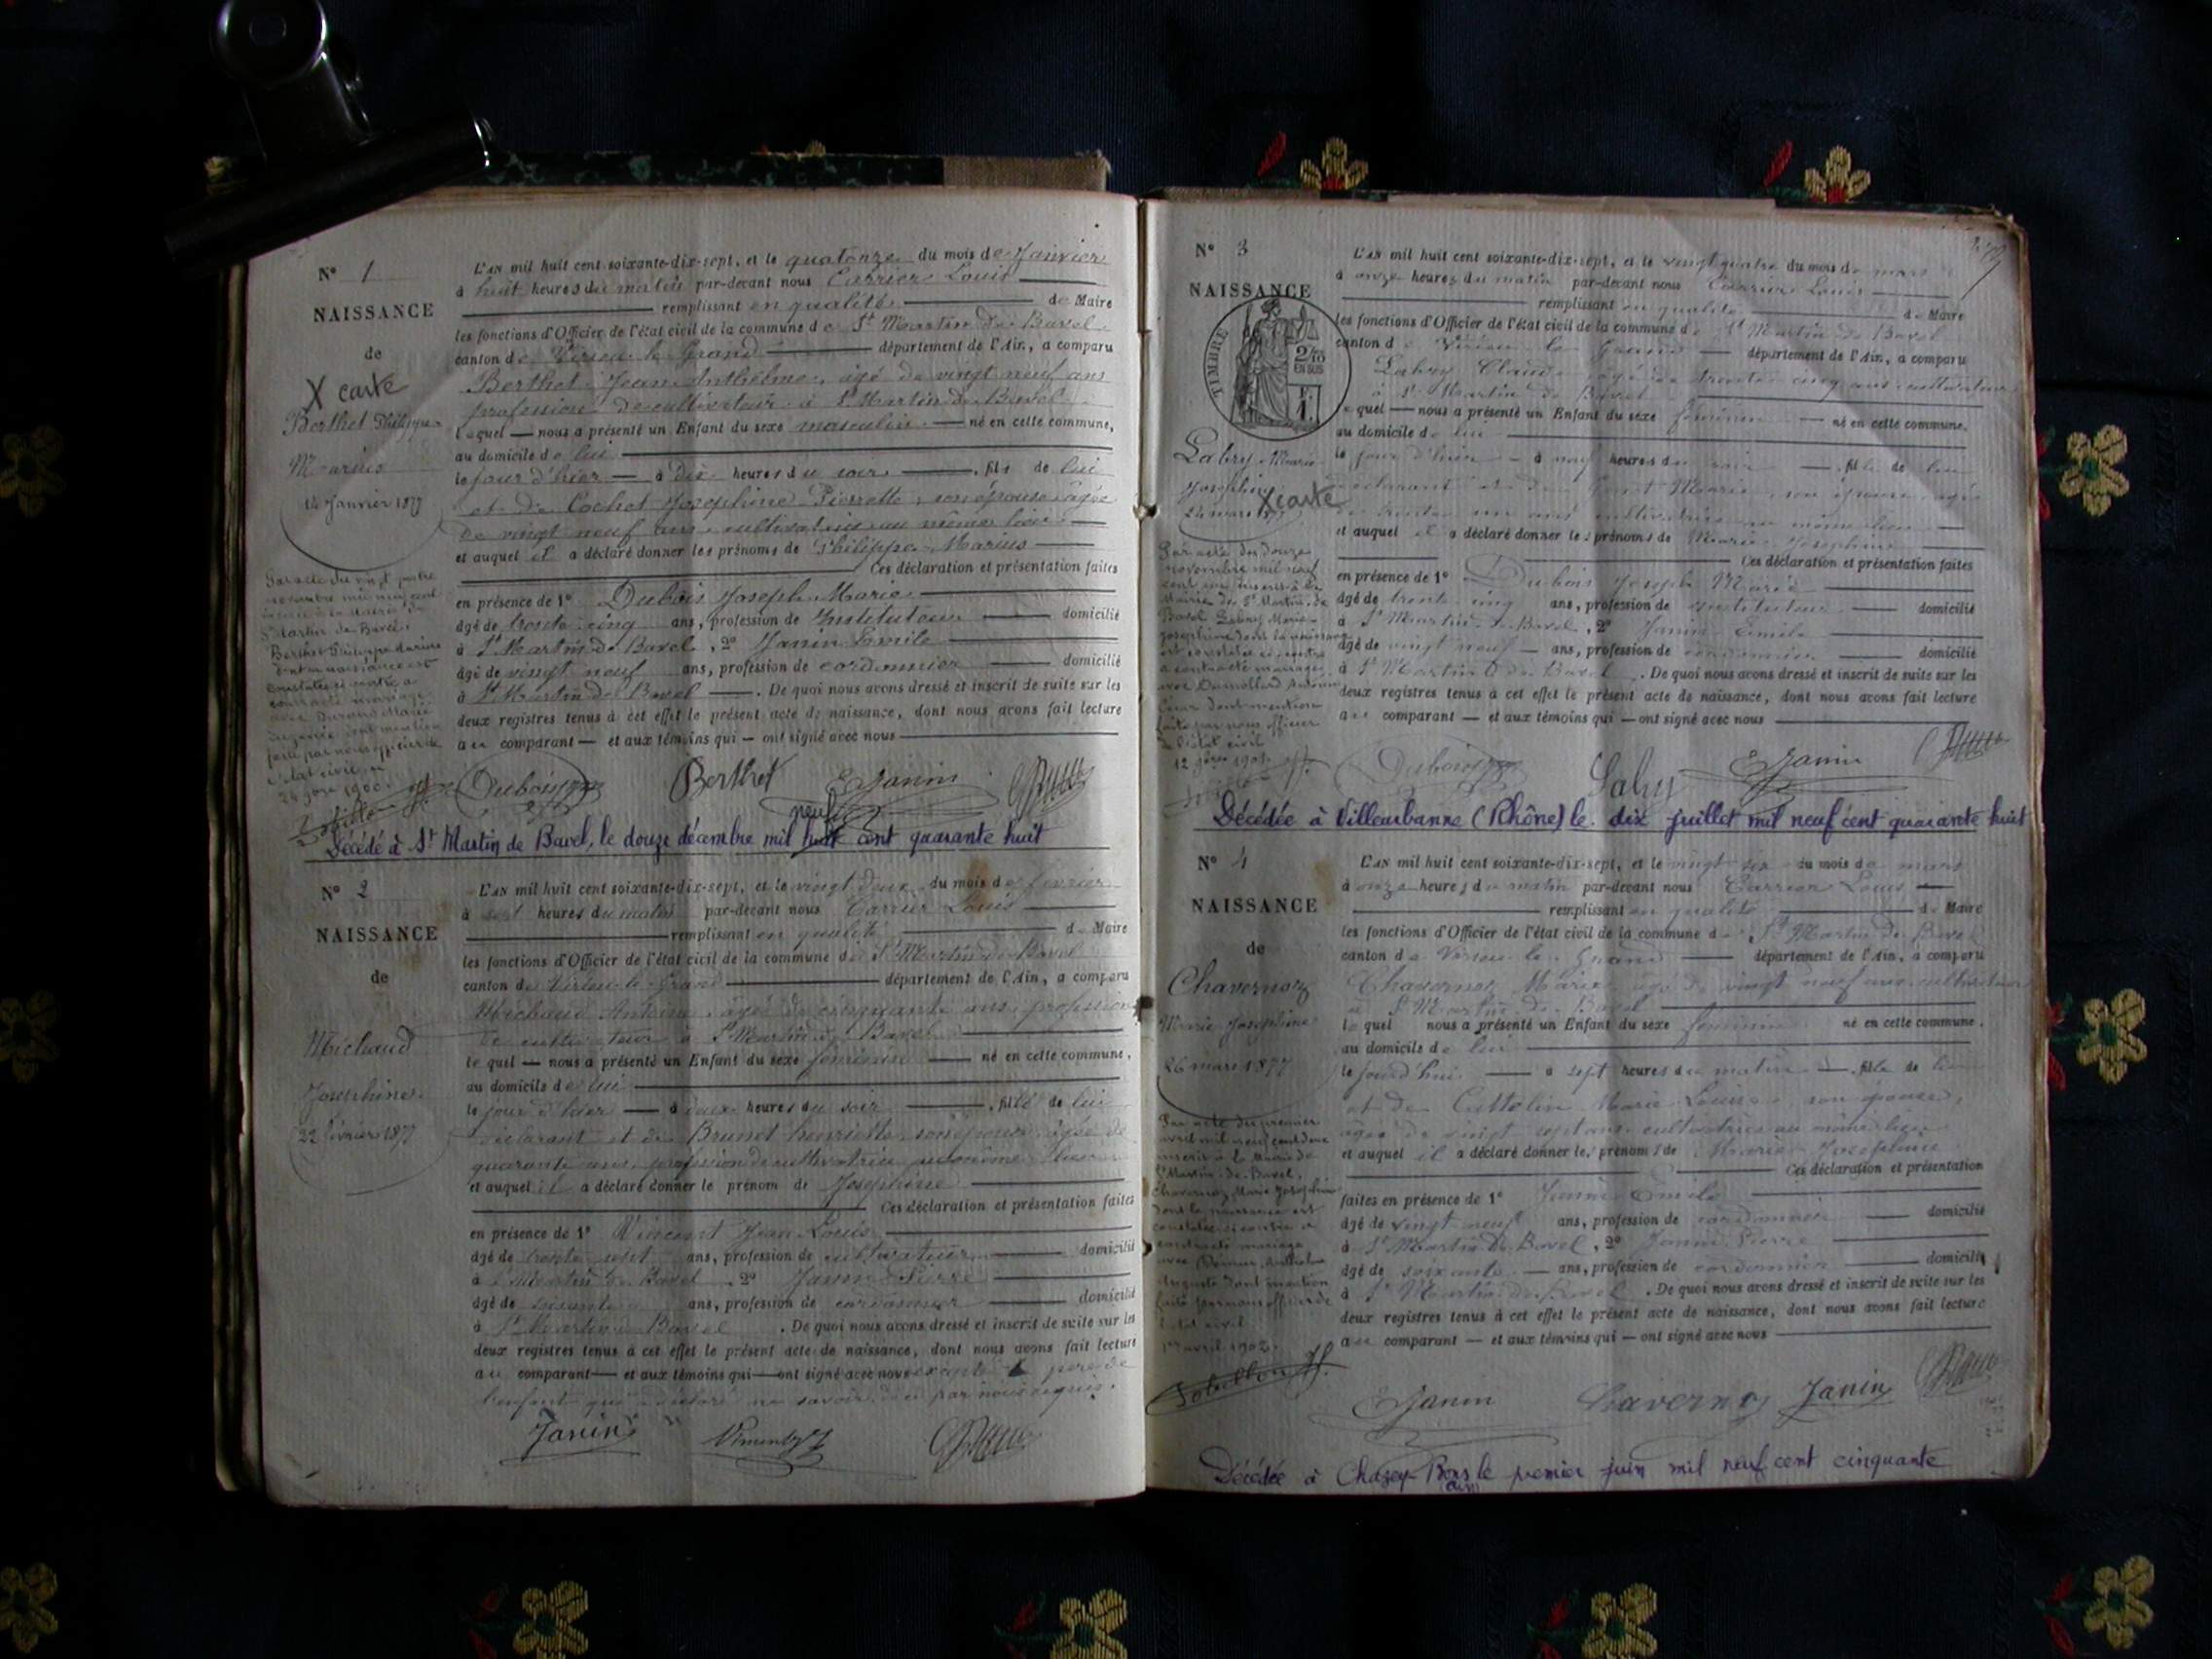 N° 1
NAISSANCE
de
X carte
Berthet Philippe
Marius
14 Janvier 1877
L'AN mil huit cent soixante-dix-sept, et le quatorze du mois de Janvier
à huit heures du matin par-devant nous Carrier Louis
remplissant en qualité de Maire
les fonctions d'Officier de l'état civil de la commune de St Martin de Bavel
canton de Virieu le Grand département de l'Ain, a comparu
Berthet Jean Anthelme, âgé de vingt neuf ans
profession de cultivateur à St Martin de Bavel
lequel nous a présenté un Enfant du sexe masculin né en cette commune,
au domicile de lui
le jour d'hier à dix heures du soir, fils de lui
et de Cochet Josephine Pierrette, son épouse âgée
de vingt neuf ans cultivatrice au même lieu
et auquel il a déclaré donner les prénoms de Philippe Marius
Ces déclaration et présentation faites
en présence de 1° Dubois Joseph Marie
âgé de trente cinq ans, profession de Instituteur domicilié
à St Martin de Bavel, 2° Janin Emile
âgé de vingt neuf ans, profession de cordonnier domicilié
à St Martin de Bavel. De quoi nous avons dressé et inscrit de suite sur les
deux registres tenus à cet effet le présent acte de naissance, dont nous avons fait lecture
au comparant et aux témoins qui ont signé avec nous
Par acte du vingt quatre
novembre mil neuf cent
inscrit à la mairie de
St Martin de Bavel,
Berthet Philippe Marius
dont la naissance est
constatée ci contre a
contracté mariage
avec Durand Marie
dont mention
faite par nous officier de
l'état civil
Dubois Berthet E Janin
neuf
Décédé à St Martin de Bavel, le douze décembre mil huit cent quarante huit
N° 2
NAISSANCE
de
Michaud
Josephine
22 février 1877
L'AN mil huit cent soixante-dix-sept, et le vingt deux du mois de février
à sept heures du matin par-devant nous Carrier Louis
remplissant en qualité de Maire
les fonctions d'Officier de l'état civil de la commune de St Martin de Bavel
canton de Virieu le Grand département de l'Ain, a comparu
Michaud Antoine, âgé de cinquante ans, profession
de cultivateur à St Martin de Bavel
lequel nous a présenté un Enfant du sexe féminin né en cette commune,
au domicile de lui
le jour d'hier à deux heures du soir, fille de lui
déclarant et de Brunet henriette, son épouse, âgée de
quarante ans, profession de cultivatrice au même lieu
et auquel il a déclaré donner le prénom de Josephine
Ces déclaration et présentation faites
en présence de 1° Vincent Jean Louis
âgé de trente sept ans, profession de cultivateur domicilié
à St Martin de Bavel, 2° Janin Pierre
âgé de soixante ans, profession de cordonnier domicilié
à St Martin de Bavel. De quoi nous avons dressé et inscrit de suite sur les
deux registres tenus à cet effet le présent acte de naissance, dont nous avons fait lecture
au comparant et aux témoins qui ont signé avec nous excepté le père de
l'enfant qui a déclaré ne savoir, de ce par nous requis.
Janin Vincent
N° 3
NAISSANCE
TIMBRE
2/10
EN SUS
Labry Marie
Josephine
X carte
L'AN mil huit cent soixante-dix-sept, et le vingt quatre du mois de mars
à onze heures du matin par-devant nous Carrier Louis
remplissant en qualité de Maire
les fonctions d'Officier de l'état civil de la commune de St Martin de Bavel
canton de Virieu le Grand département de l'Ain, a comparu
Labry Claude âgé de trente cinq ans cultivateur
à St Martin de Bavel
lequel nous a présenté un Enfant du sexe féminin né en cette commune,
au domicile de lui
le jour d'hier à neuf heures du soir, fille de lui
déclarant et de Marie, son épouse âgée
de trente un ans cultivatrice au même lieu
et auquel il a déclaré donner les prénoms de Marie Josephine
Ces déclaration et présentation faites
en présence de 1° Dubois Joseph Marie
âgé de trente cinq ans, profession de instituteur domicilié
à St Martin de Bavel, 2° Janin Emile
âgé de vingt neuf ans, profession de cordonnier domicilié
à St Martin de Bavel. De quoi nous avons dressé et inscrit de suite sur les
deux registres tenus à cet effet le présent acte de naissance, dont nous avons fait lecture
au comparant et aux témoins qui ont signé avec nous
Par acte du douze
novembre mil neuf
cent un inscrit à la
Mairie de St Martin de
Bavel Labry Marie
Josephine dont la naissance
est constatée ci contre
a contracté mariage
avec
dont mention
faite par nous officier
de l'état civil
Dubois Labry E Janin
Décédée à Villeurbanne (Rhône) le dix juillet mil neuf cent quarante huit
N° 4
NAISSANCE
de
Chavernoz
Marie Josephine
26 mars 1877
L'AN mil huit cent soixante-dix-sept, et le vingt six du mois de mars
à onze heures du matin par-devant nous Carrier Louis
remplissant en qualité de Maire
les fonctions d'Officier de l'état civil de la commune de St Martin de Bavel
canton de Virieu le Grand département de l'Ain, a comparu
Chavernoz Marie âgé de vingt neuf ans cultivateur
à St Martin de Bavel
lequel nous a présenté un Enfant du sexe féminin né en cette commune,
au domicile de lui
le jourd'hui à sept heures du matin, fille de lui
et de Cuttelin Marie Louise, son épouse,
âgée de vingt sept ans cultivatrice au même lieu
et auquel il a déclaré donner les prénoms de Marie Josephine
Ces déclaration et présentation
faites en présence de 1° Janin Emile
âgé de vingt neuf ans, profession de cordonnier domicilié
à St Martin de Bavel, 2° Janin Pierre
âgé de soixante ans, profession de cordonnier domicilié
à St Martin de Bavel. De quoi nous avons dressé et inscrit de suite sur les
deux registres tenus à cet effet le présent acte de naissance, dont nous avons fait lecture
au comparant et aux témoins qui ont signé avec nous
Par acte du premier
avril mil neuf cent deux
inscrit à la Mairie de
St Martin de Bavel,
Chavernoz Marie Josephine
dont la naissance est
constatée ci contre a
contracté mariage
avec
Auguste dont mention
faite par nous officier de
l'état civil
1er avril 1902.
E Janin Chavernoz Janin
Décédée à Chazey-Bons le premier juin mil neuf cent cinquante
(Ain)